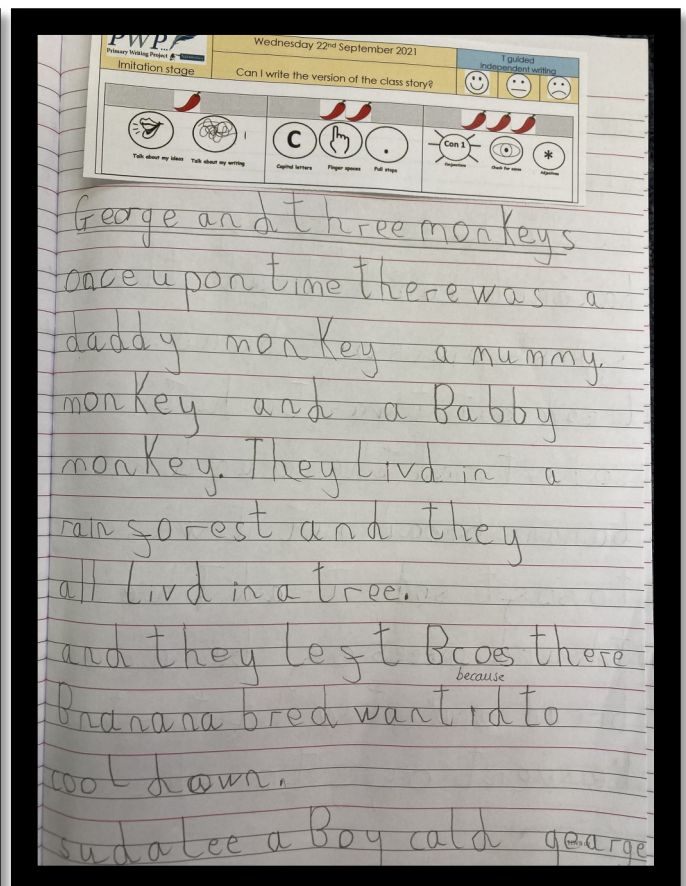 PWP
Primary Writing Project
Wednesday 22nd September 2021
T guided
Independent writing
Imitation stage
Can I write the version of the class story?
C
Con 1
*
Talk about my ideas
Talk about my writing
Capital letters
Finger spaces
Full stops
Conjunctions
Check for sense
Adjectives
George and three monkeys
once upon time there was a
daddy monkey a mummy.
monkey and a Babby
monkey. They Livd in a
rain forest and they
all Livd in a tree.
and they left Bcoes there
because
Bnanana bred wantid to
cool down.
sudalee a Boy cald gearge